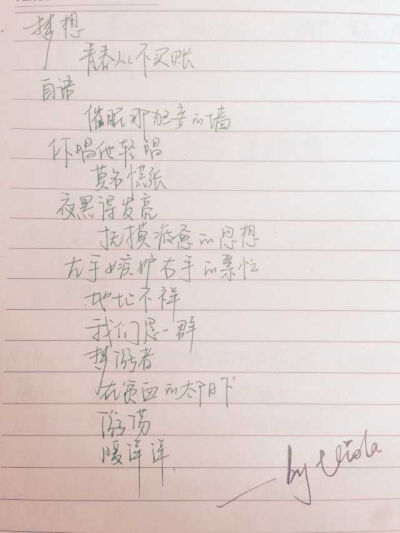 梦想
青春从不买账
自语
催眠那加害的墙
你唱他轻唱
莫名慌张
夜黑得发亮
抚摸疲惫的思想
左手嫉妒右手的柔忙
地址不祥
我们是一群
梦游者
在贫血的太阳下
游荡
暖洋洋
——by Viola